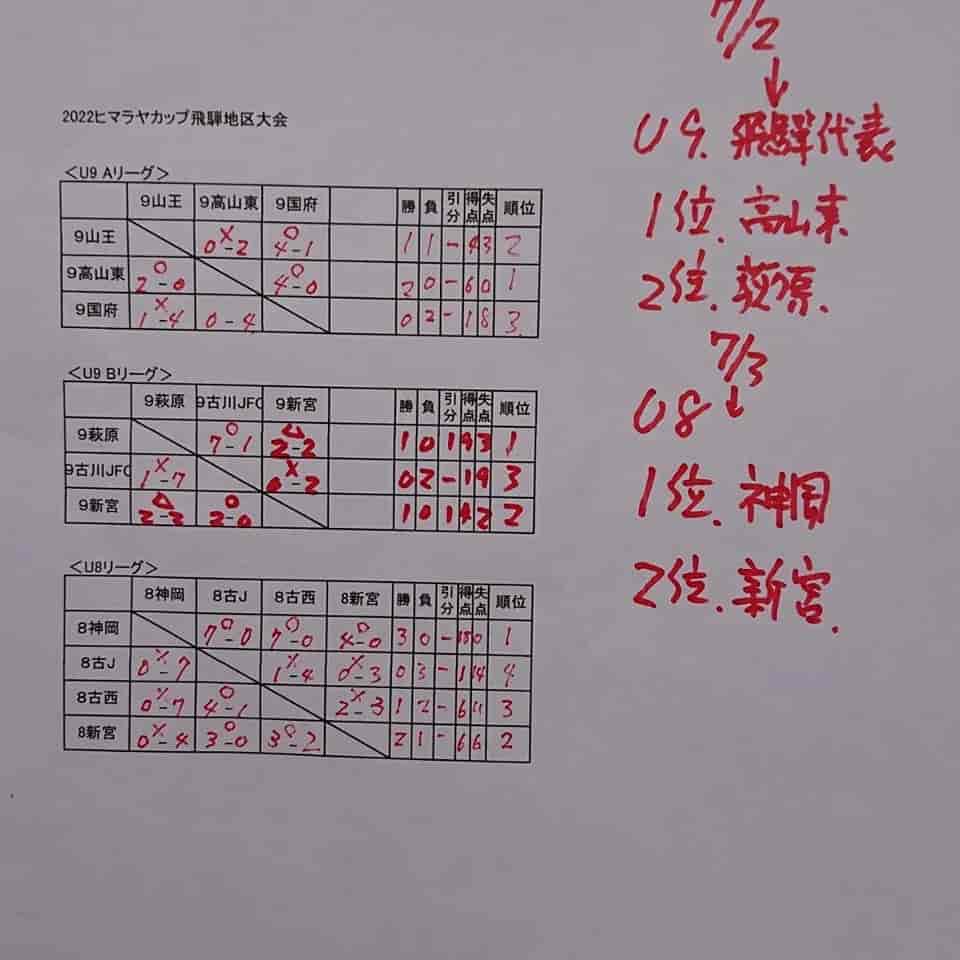 7/2
↓
U9. 飛騨代表
1位. 高山東
2位. 萩原.
7/3
U8 ↓
1位. 神岡
2位. 新宮.
2022ヒマラヤカップ飛騨地区大会
<U9 Aリーグ>
9山王 9高山東 9国府 勝 負 引分 得点 失点 順位
9山王 × 0-2 ○ 4-1 1 1 - 4 3 2
9高山東 ○ 2-0 ○ 4-0 2 0 - 6 0 1
9国府 × 1-4 0-4 0 2 - 1 8 3
<U9 Bリーグ>
9萩原 9古川JFC 9新宮 勝 負 引分 得点 失点 順位
9萩原 ○ 7-1 △ 2-2 1 0 1 9 3 1
9古川JFC × 1-7 × 0-2 0 2 - 1 9 3
9新宮 △ 2-2 ○ 2-0 1 0 1 4 2 2
<U8リーグ>
8神岡 8古J 8古西 8新宮 勝 負 引分 得点 失点 順位
8神岡 ○ 7-0 ○ 7-0 ○ 4-0 3 0 - 18 0 1
8古J × 0-7 × 1-4 × 0-3 0 3 - 1 14 4
8古西 × 0-7 ○ 4-1 × 2-3 1 2 - 6 11 3
8新宮 × 0-4 ○ 3-0 ○ 3-2 2 1 - 6 6 2